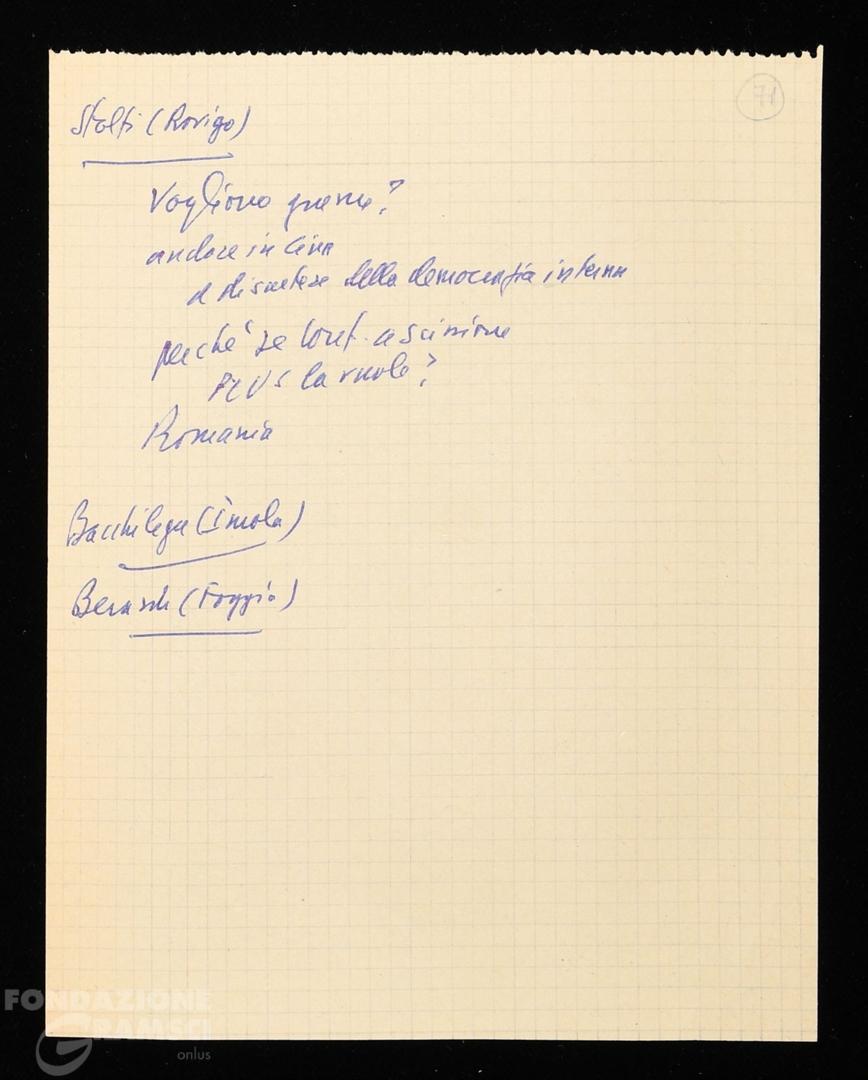 71
Stolfi (Rovigo)
Vogliono guerra?
andare in Cina
a discutere della democrazia interna
perché se conf. a scissione
PCUS la vuole?
Romania
Bacchilega (Imola)
(Foggia)
FONDAZIONE
GRAMSCI
onlus